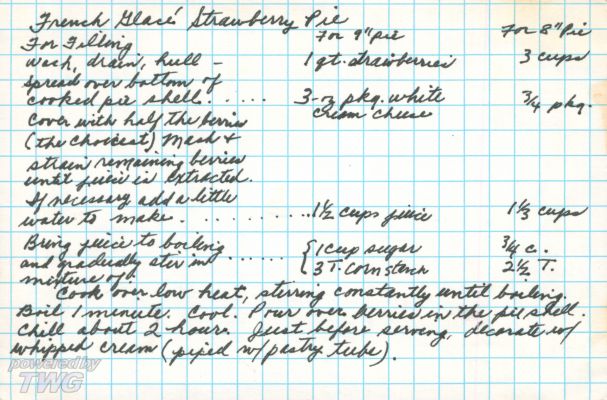 French Glacé Strawberry Pie
For Filling For 9" pie For 8" Pie
wash, drain, hull – 1 qt. strawberries 3 cups
Spread over bottom of
cooked pie shell. . . . . 3-oz pkg. white cream cheese 3/4 pkg.
Cover with half the berries
(the choicest) Mash &
strain remaining berries
until juice is extracted.
If necessary add a little
water to make. . . . . . . . . . 1 1/2 cups juice 1 1/3 cups
Bring juice to boiling 1 cup sugar 3/4 c.
and gradually stir in . . . . . . { 3 T. cornstarch 2 1/2 T.
mixture of
Cook over low heat, stirring constantly until boiling.
Boil 1 minute. Cool. Pour over berries in the pie shell.
Chill about 2 hours. Just before serving, decorate w/
whipped cream (piped w/ pastry tube).
powered by
TWG